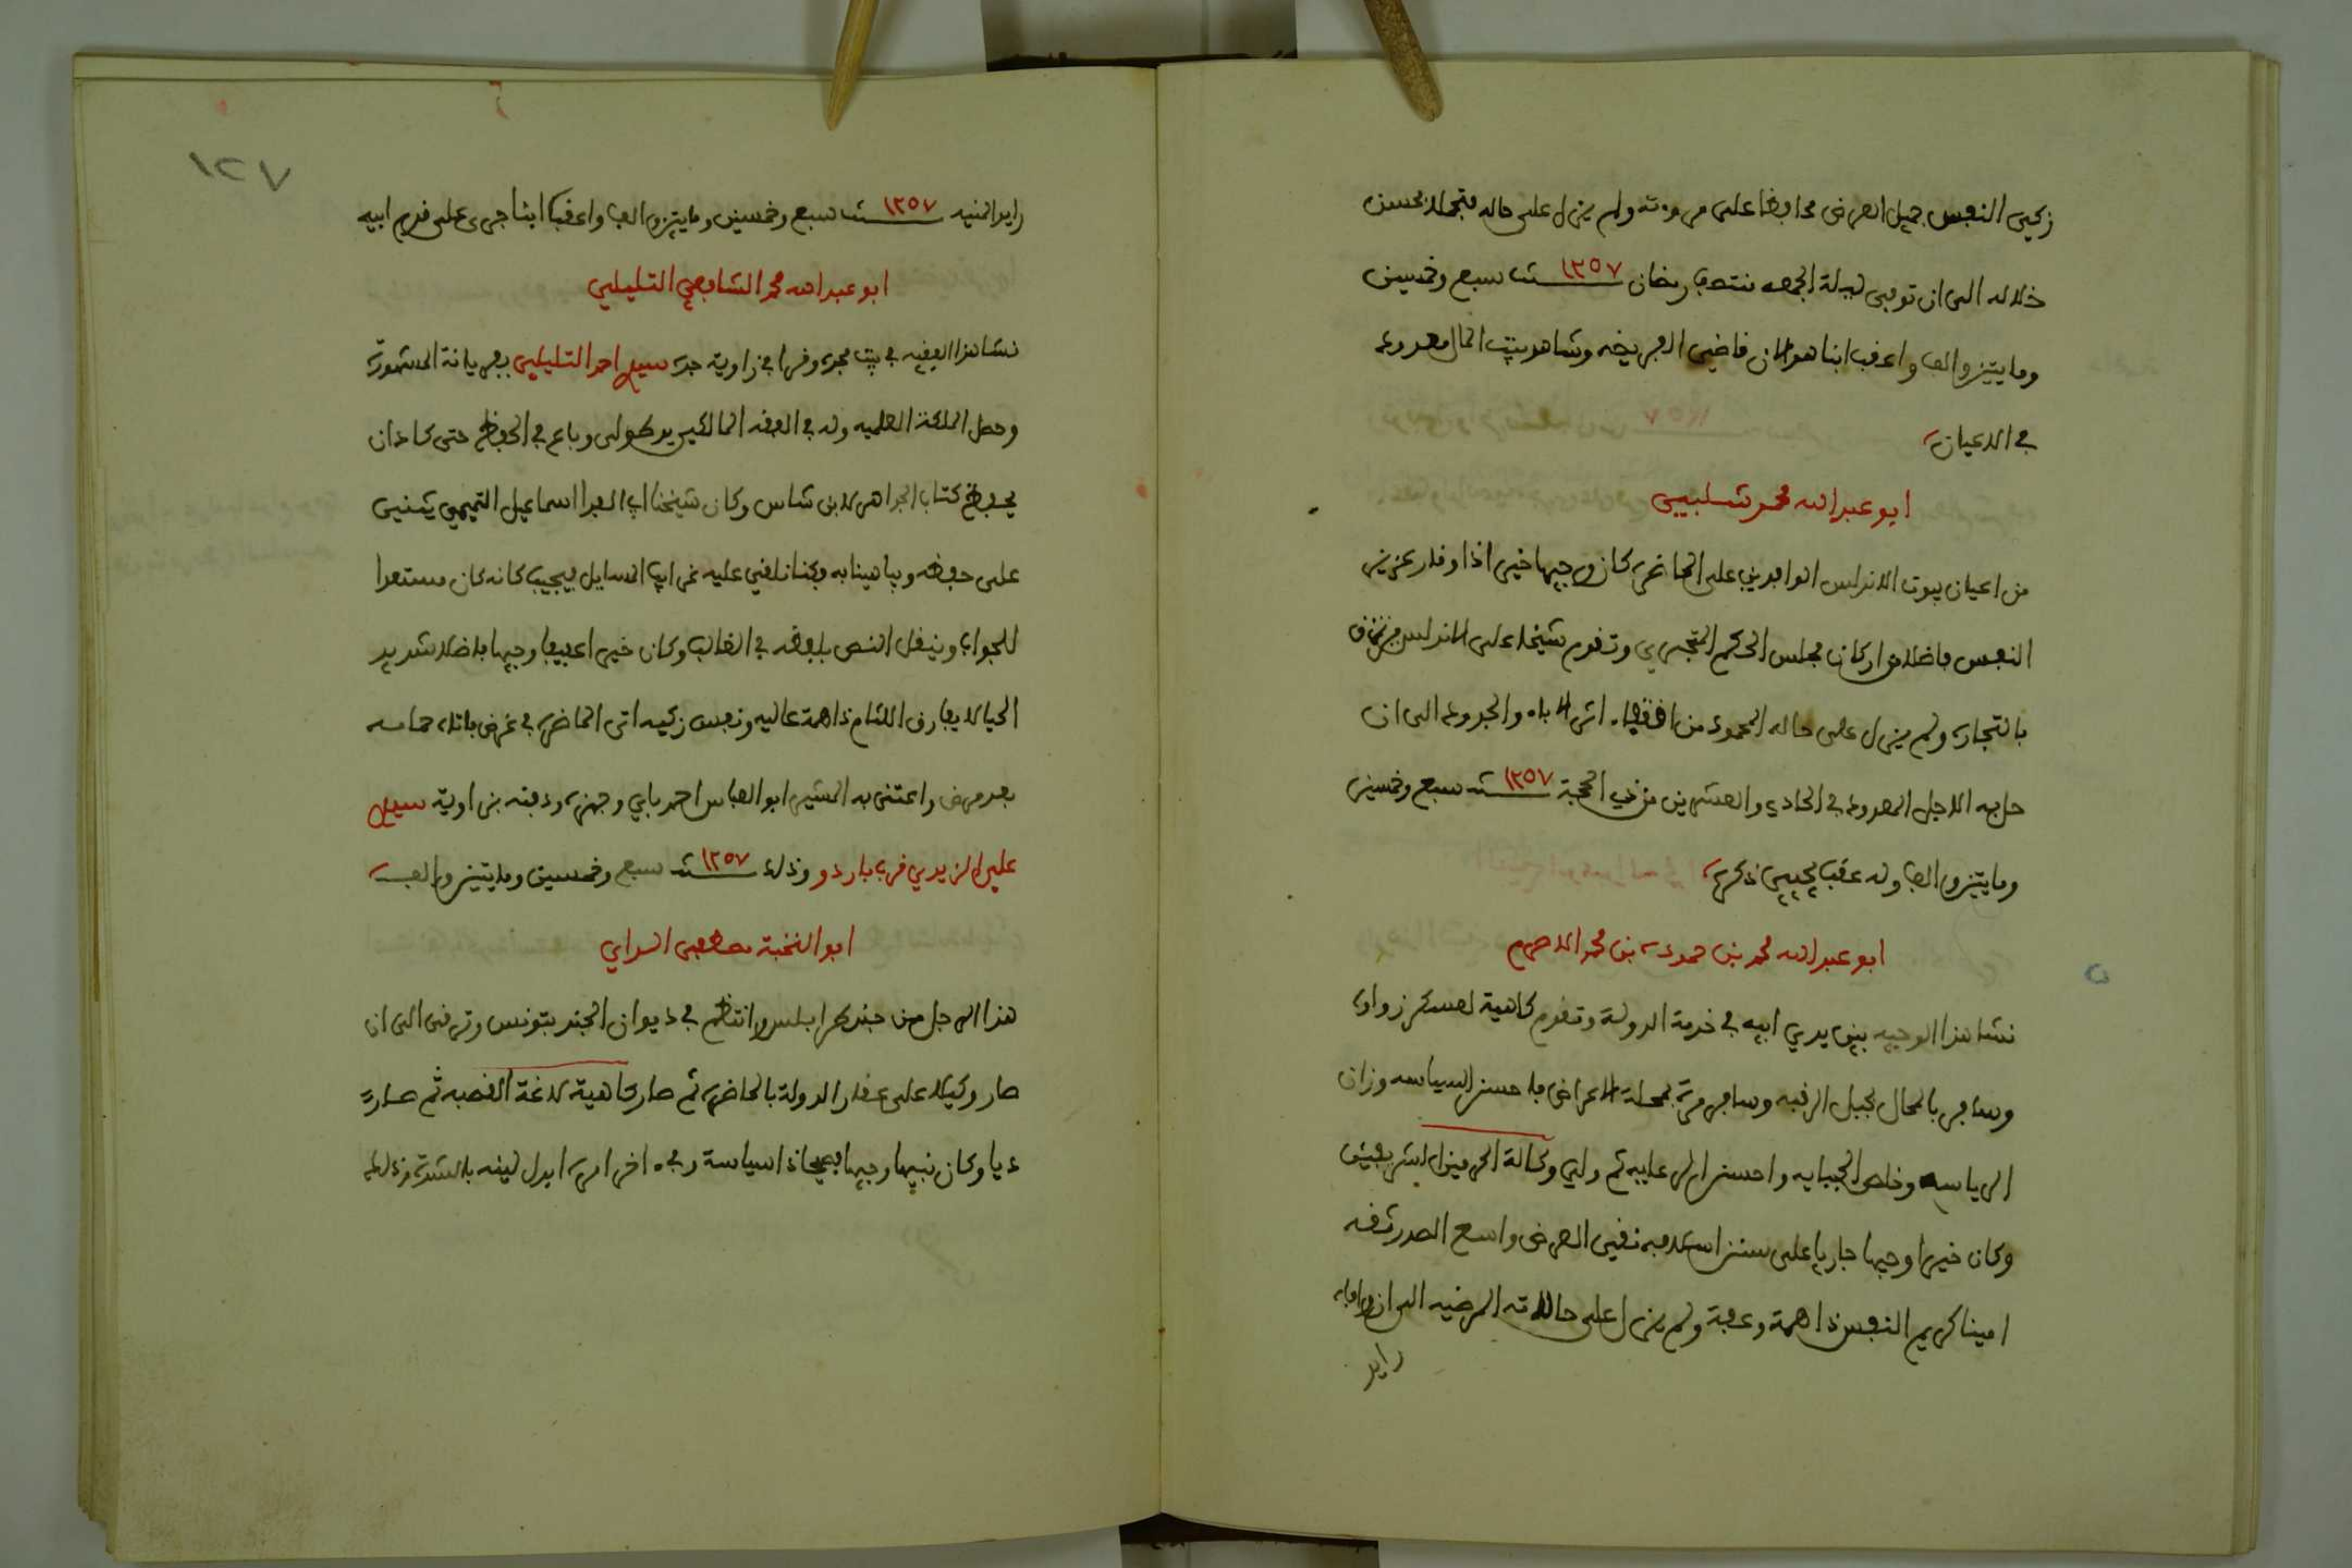 زكي النفس جميل العرض محافظا على مروءته ولم يزل على حاله متجملا بحسن
خلاله الى ان توفي ليلة الجمعه منتصف رمضان سنة ١٢٥٧ سبع وخمسين
ومايتين والف واعقب ابنا هو الان قاضي الفريضه وشاهد بيت المال معدود
في الاعيان
ابو عبد الله محمد شلبي
من اعيان بيوت الاندلس الوافدين على الحاضرة كان وجيها خيرا ذا وقار عزيز
النفس فاضلا من اركان مجلس الحكم المتجري وتقدم شيخا على الاندلس
بالتجارة ولم يزل على حاله المحمود من اقتفاء اثر الاباء والجدود الى ان
حل به الاجل المعدود في الحادي والعشرين من ذي الحجة سنة ١٢٥٧ سبع وخمسين
ومايتين والف وله عقب يحيي ذكره
ابو عبد الله محمد بن حمودة بن محمد الاصرم
نشا هذا الوجيه بين يدي ابيه في خدمة الدولة وتقدم كاهية لعسكر زواوة
وسافر بالمحال لجبل الرقبه وسافر مرة بمحلة الاعراض فاحسن السياسه وزان
الرياسه وخلص الجبايه واحسن الرعايه ثم ولي وكالة الحرمين الشريفين
وكان خيرا وجيها جاريا على سنن اسلافه نقي العرض واسع الصدر ثقه
امينا كريم النفس ذا همة وعفة ولم يزل على حالاته المرضيه الى ان وافاه
رايد
رايد المنيه سنة ١٢٥٧ سبع وخمسين ومايتين والف واعقب ابنا جرى على قدم ابيه
ابو عبد الله محمد الشافعي التليلي
نشا هذا الفقيه في بيت مجده وقرا في زاوية جده سيدي احمد التليلي بفريانة المشهورة
وحصل الملكة العلميه وله في الفقه المالكي يد طولى وباع في الحفظ حتى كاد ان
يحفظ كتاب الجواهر لابن شاس وكان شيخنا ابو الفدا اسماعيل التميمي يثني
على حفظه ويباهينا به وكنا نلقي عليه غرايب المسايل فيجيب كانه كان مستعدا
للجواب وينقل النص بلفظه في الغالب وكان خيرا عفيفا وجيها فاضلا شديد
الحيا لا يفارق اللثام ذا همة عاليه ونفس زكيه اتى الحاضرة في غرض فاتاه حمامه
بعد مرض واعتنى به المشير ابو العباس احمد باي وجهزه ودفنه بزاوية سيدي
علي الزيدي قرب باردو وذلك سنة ١٢٥٧ سبع وخمسين ومايتين والف
ابو النخبة مصطفى السراي
هذا الرجل من جند طرابلس وانتظم في ديوان الجند بتونس وترقى الى ان
صار وكيلا على عقار الدولة بالحاضرة ثم صار كاهية لاغة القصبه ثم صار
دايا وكان نبيها وجيها ذا سياسة وفي اخر امره ابدل لينه بالشدة وذلك
١٢٧